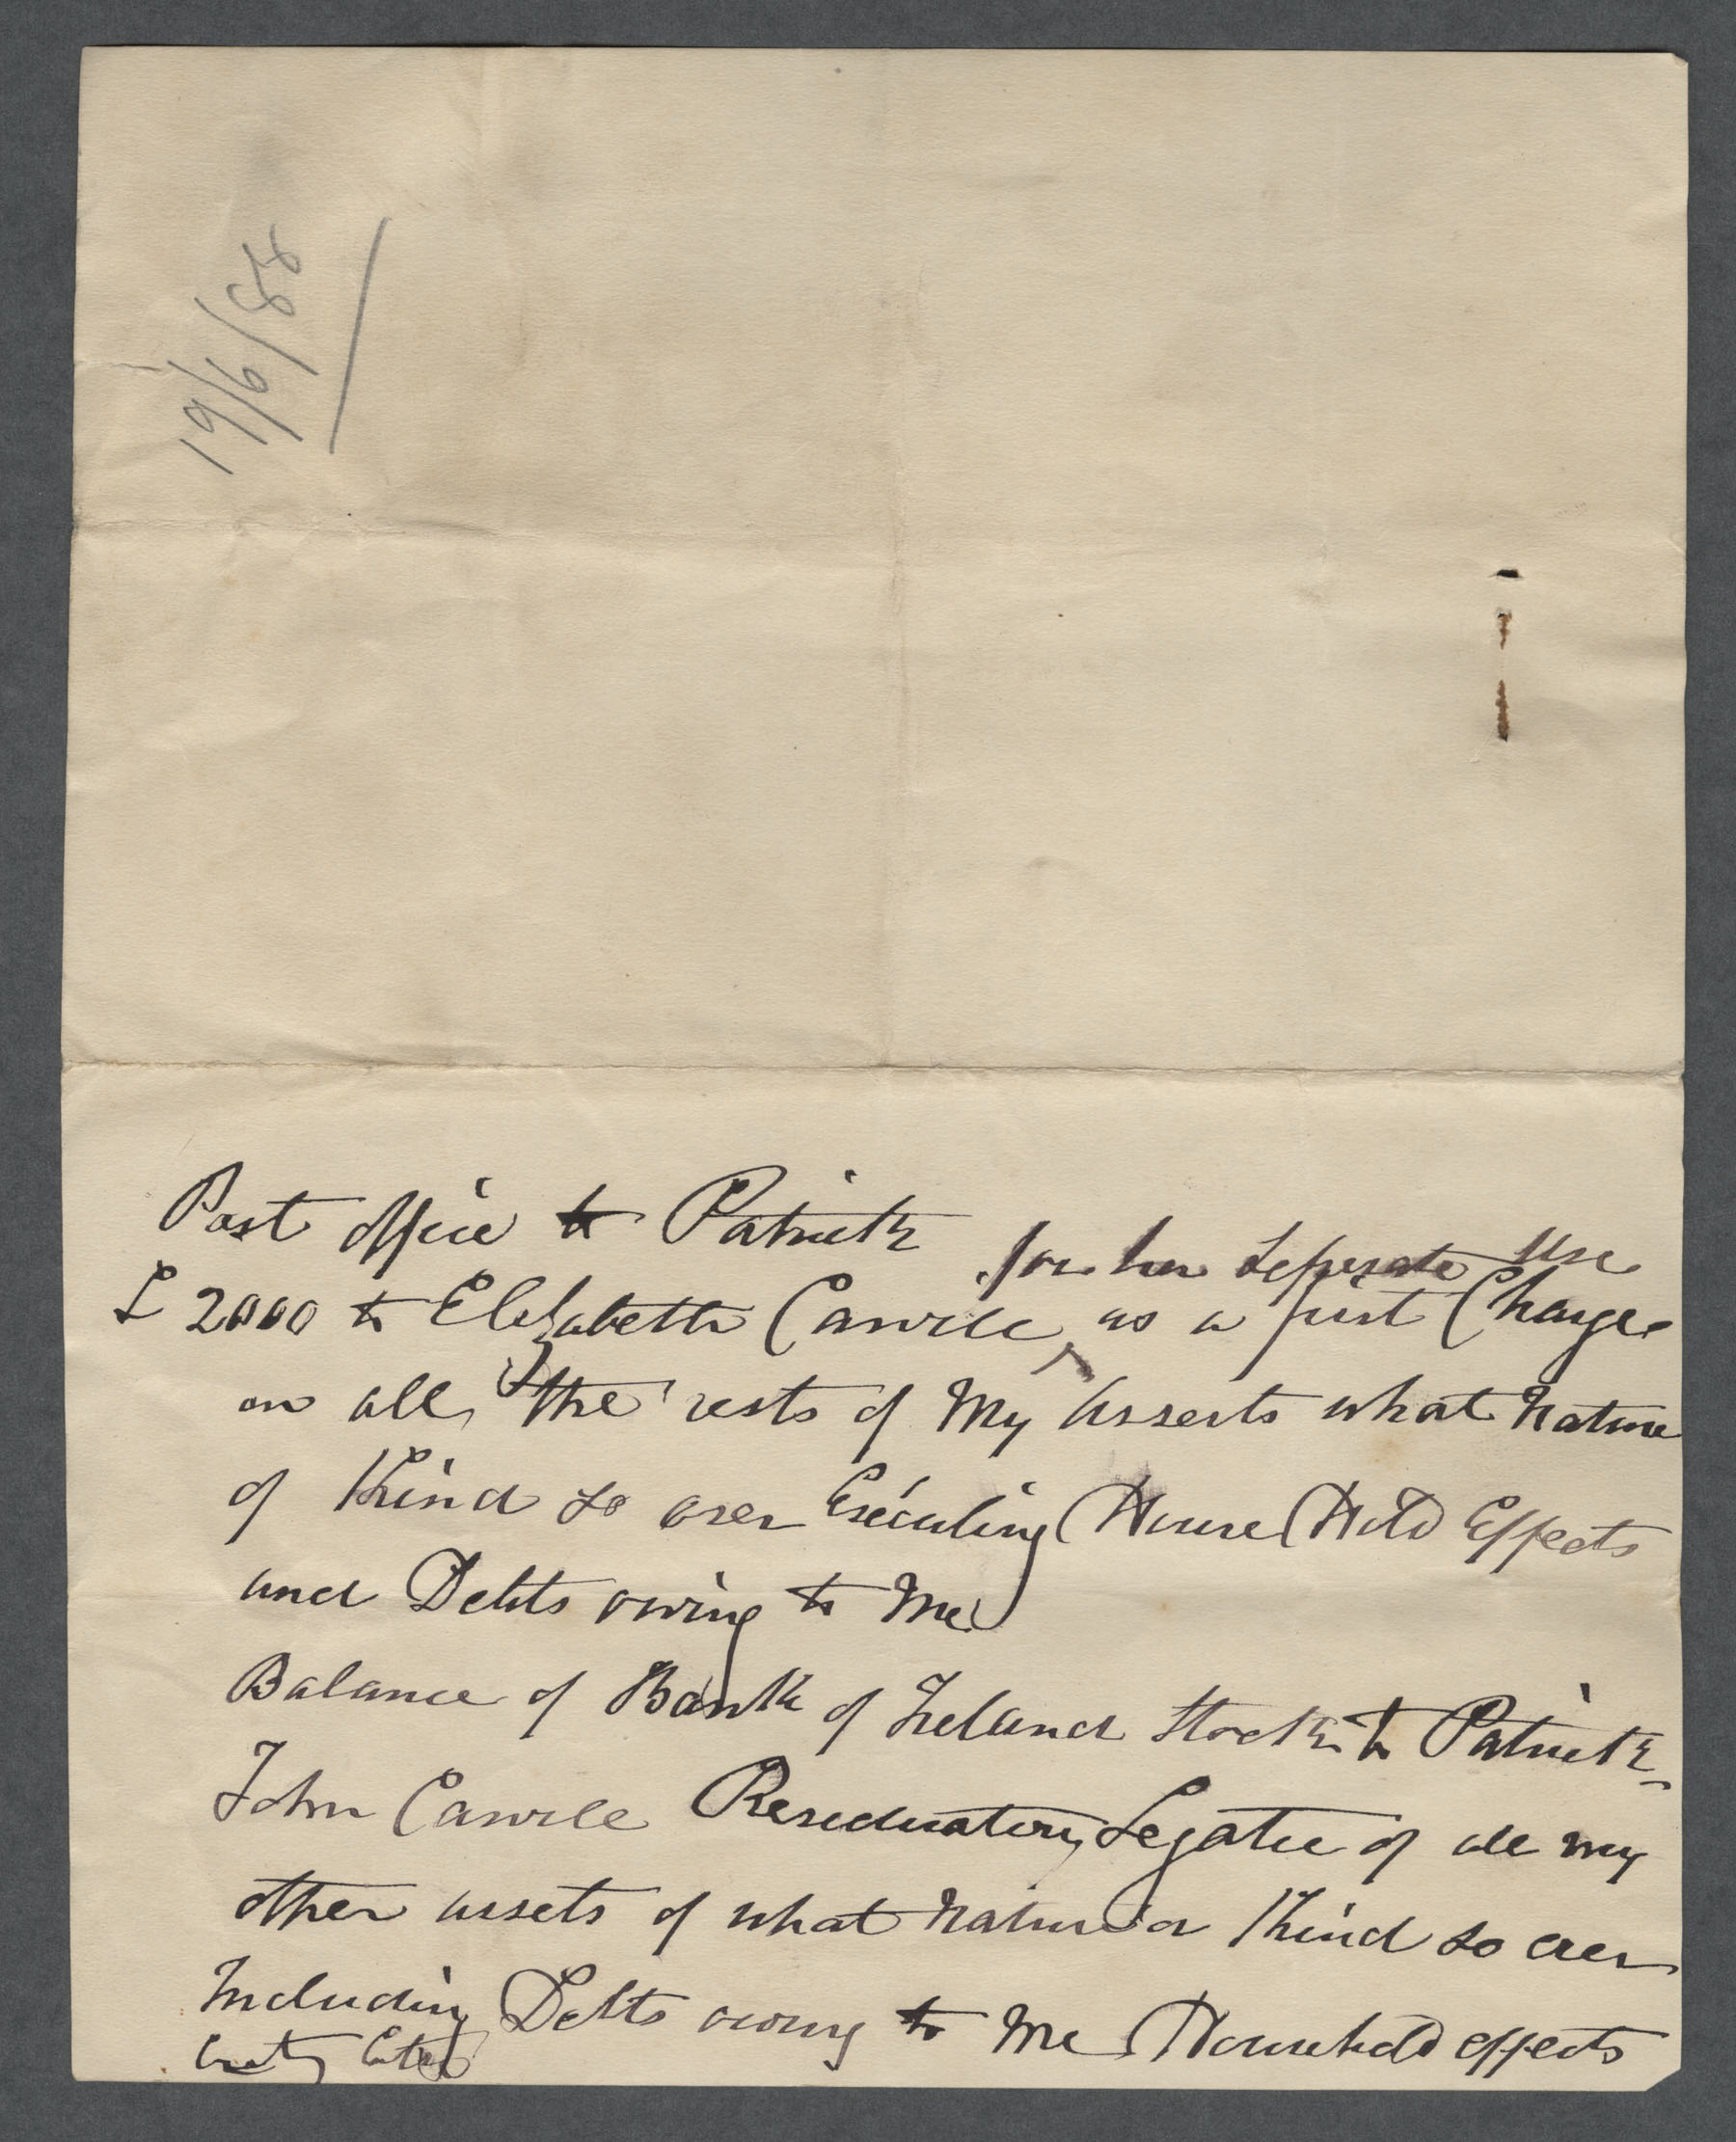 19/6/88
Post office to Patrick
for her Seperate Use
£ 2000 to Elizabeth Carvill as a first Charge
on all the rests of My Asserts what Nature
of Kind so over Excluding House Hold Effects
and Debts owing to Me
Balance of Bank of Ireland Stock to Patrick
John Carvill Residuatory Legatee of all my
other assets of what Nature or Kind so ever
Including Debts owing to Me Household effects